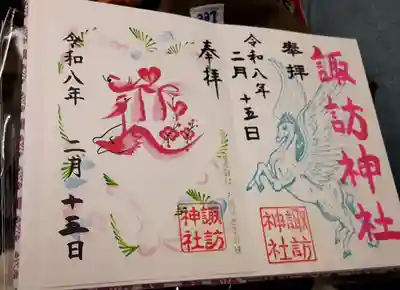 諏訪神社
奉拝
令和八年
二月
十五日
諏訪
神社
奉拝
令和八年
二月十五日
諏訪
神社